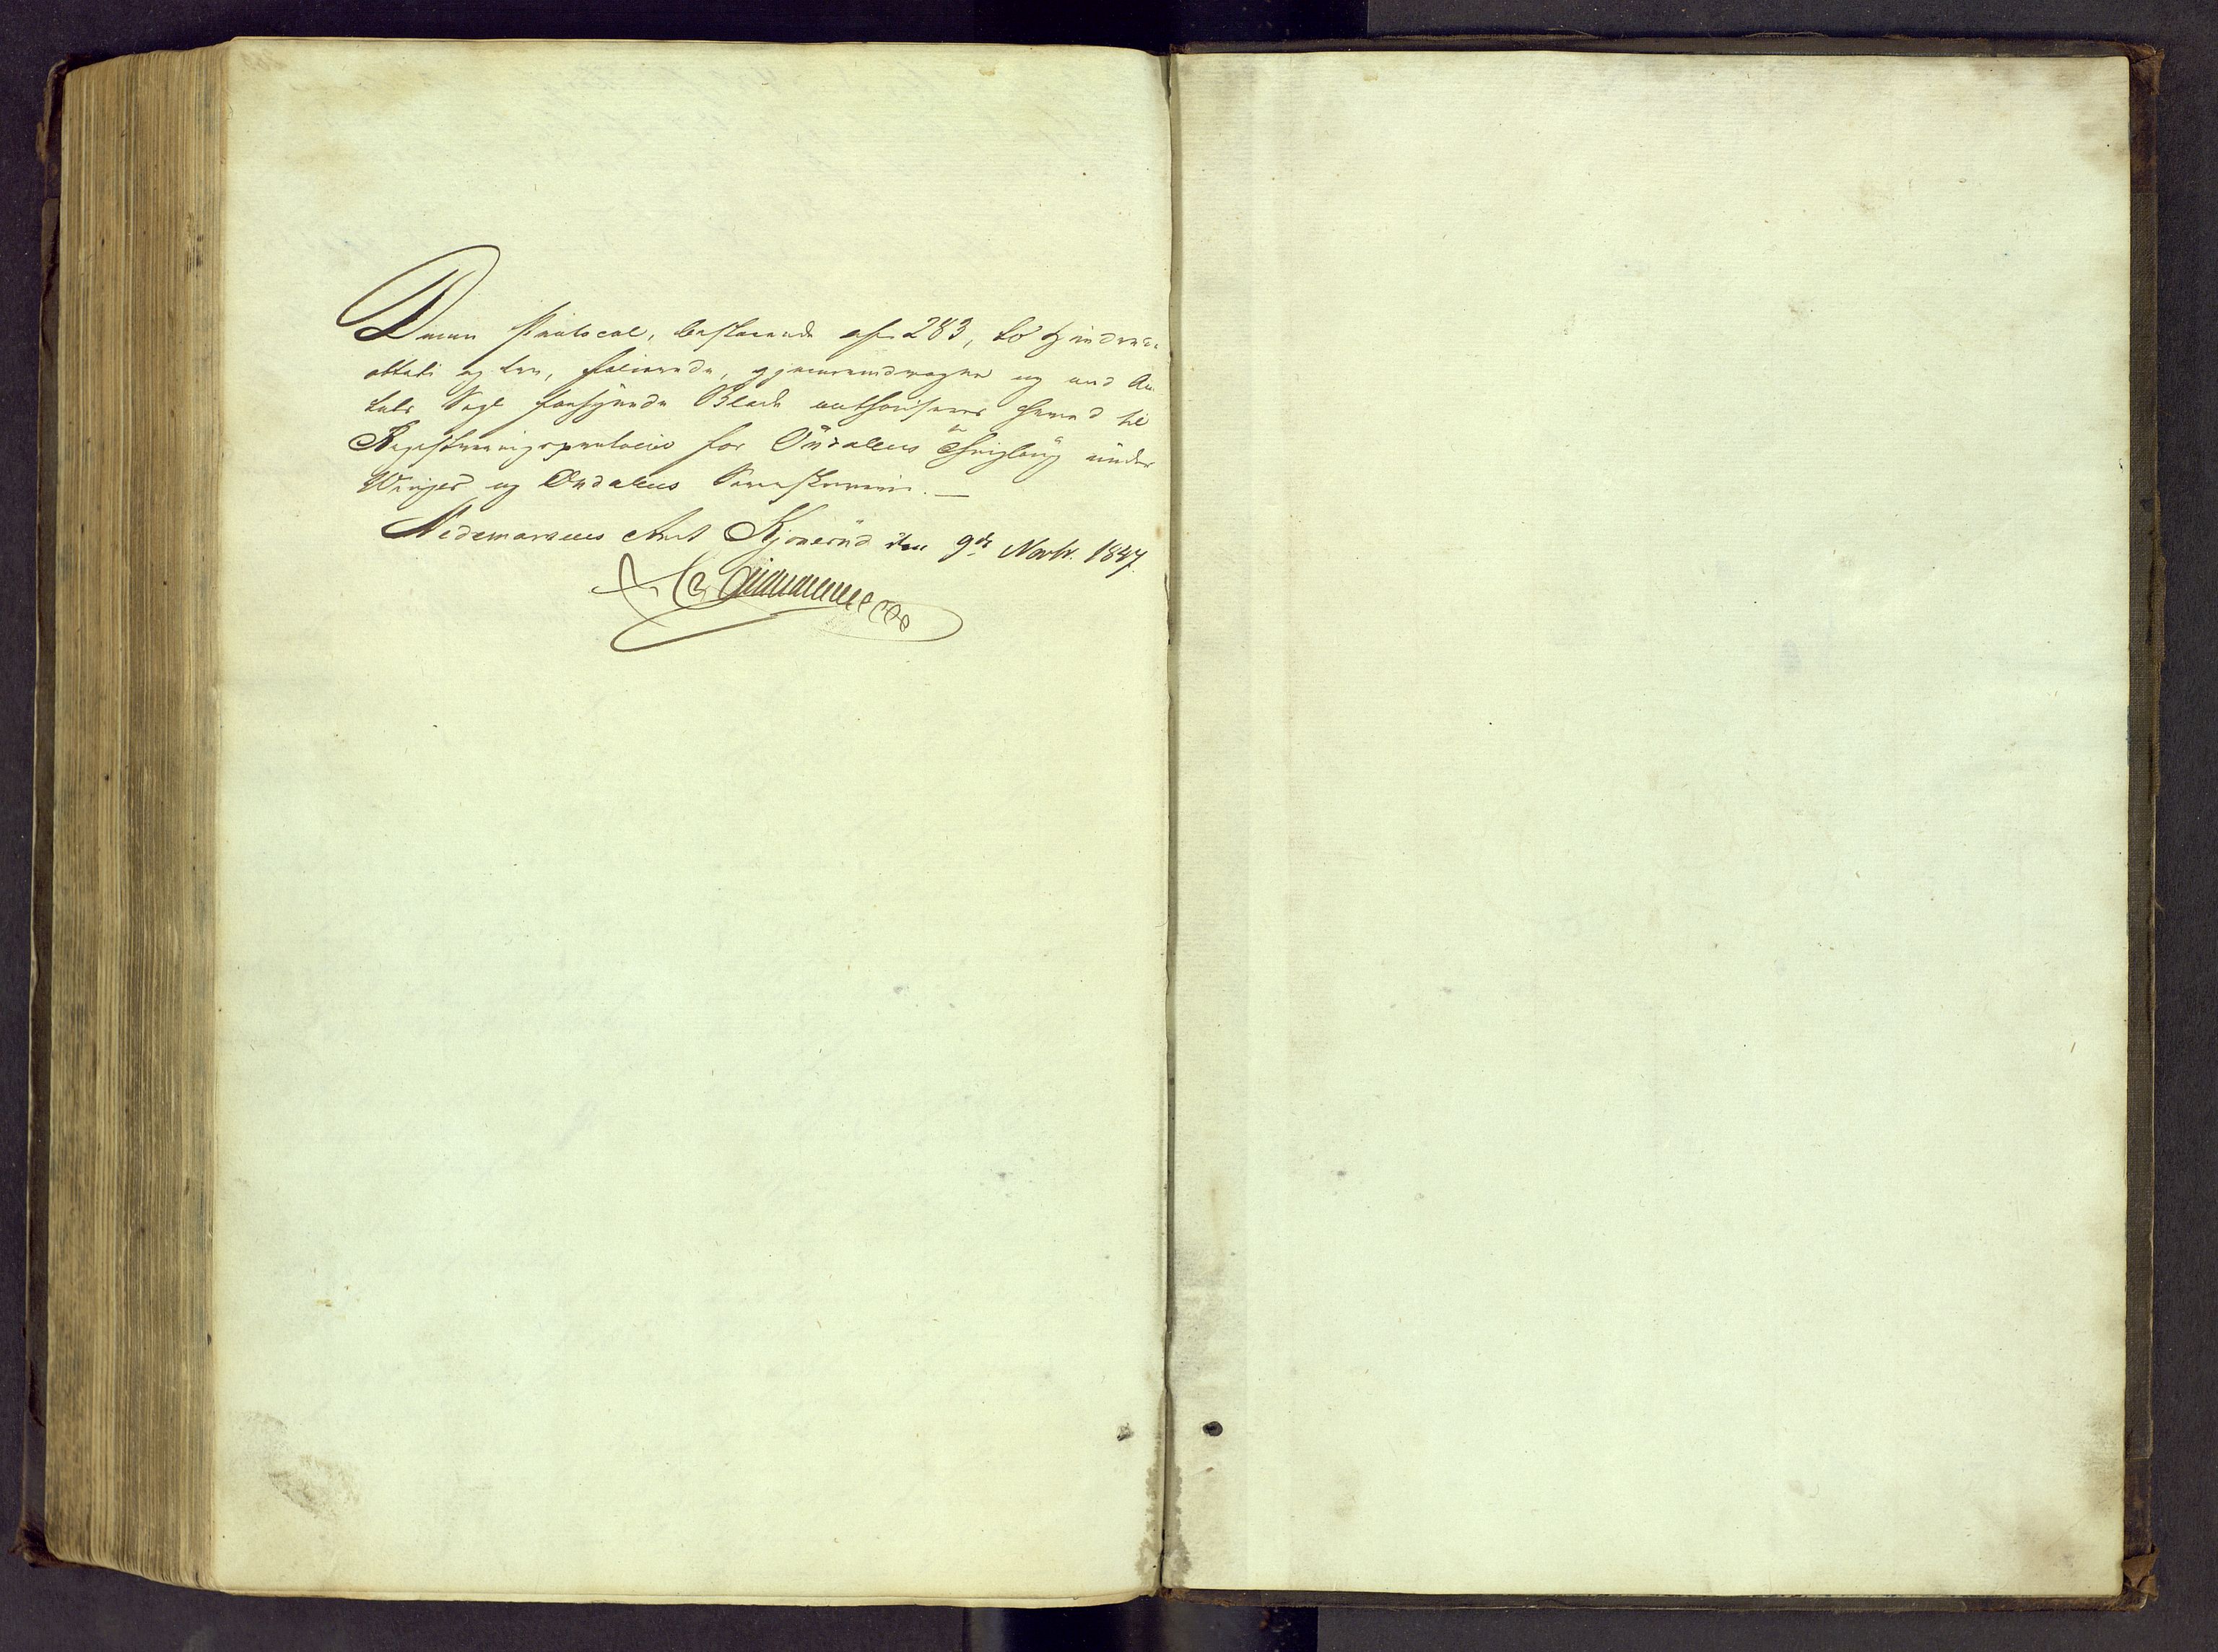 Denne Protocol, bestaaende af 283, to Hundrede
otteti og tre, folierede, gjennemdragne og med Am-
tets Segl forsynede Blade authoriseres herved til
Registreringsprotocol for Oudalens Thinglaug under
Winger og Oudalens Sorenskriveri. —
Hedemarkens Amt Kjonerud den 9de Novbr. 1847.